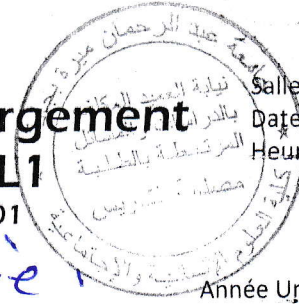 جامعة عبد الرحمان ميرة بجاية
نيابة العميد المكلفة
بالدراسات والمسائل
المرتبطة بالطلبة
مصلحة التدريس
كلية العلوم الإنسانية والاجتماعية
Salle
rgement
Date
Heur
L1
01
è
Année Un